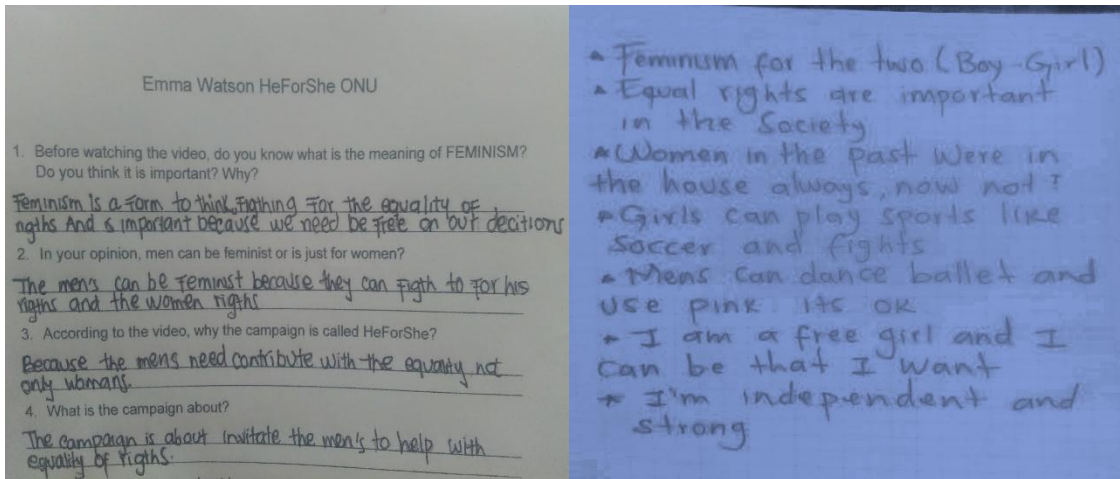 Emma Watson HeForShe ONU
1. Before watching the video, do you know what is the meaning of FEMINISM?
Do you think it is important? Why?
Feminism is a form to think, Figthing For the equality of
rigths And is important because we need be free on our decitions
2. In your opinion, men can be feminist or is just for women?
The men's can be Feminist because they can Figth to For his
rigths and the women rigths
3. According to the video, why the campaign is called HeForShe?
Because the mens need contribute with the equality not
only womans.
4. What is the campaign about?
The campaign is about invitate the men's to help with
equality of rigths.
Feminism for the two (Boy-Girl)
Equal rights are important
in the Society
Women in the past were in
the house always, now not
Girls can play sports like
Soccer and fights
Mens can dance ballet and
use pink its ok
I am a free girl and I
can be that I want
I'm independent and
strong